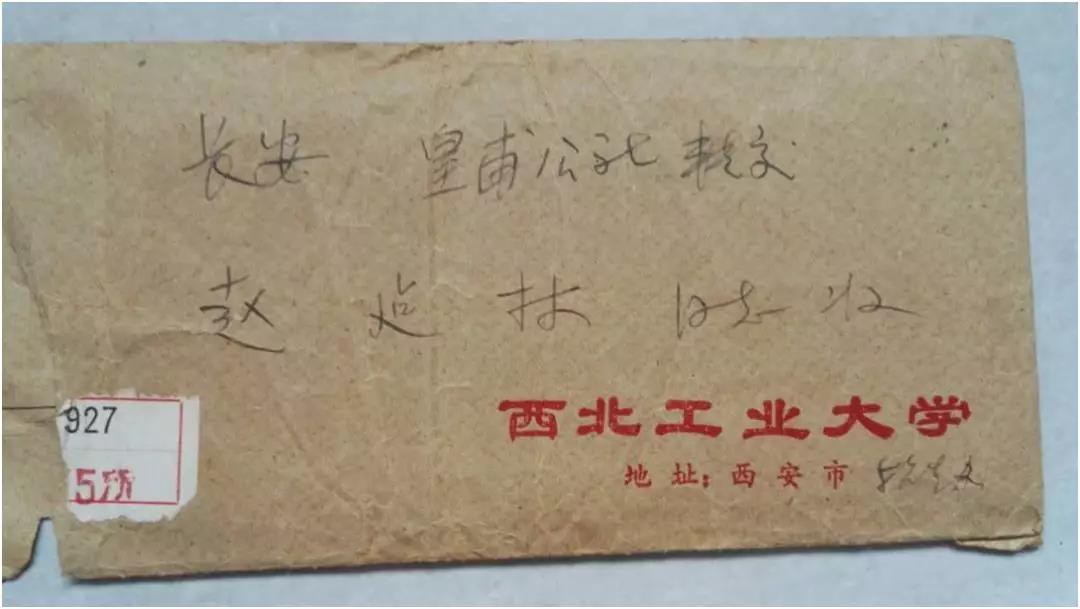 长安 皇甫公社转交
赵 延 林 同志 收
927
5所
西北工业大学
地址：西安市